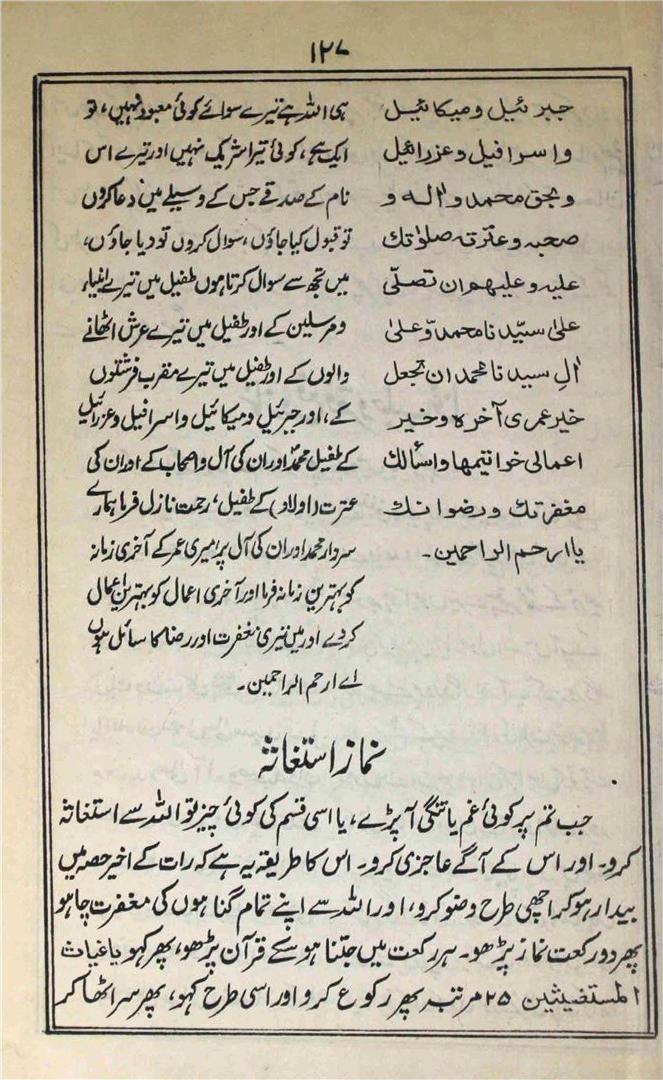 ۱۲۷
جبرئیل ومیکائیل
واسرافیل وعزرائیل
وبحق محمد واٰلہ و
صحبہ وعترتہ صلوٰتک
علیہ وعلیھم ان تصلّی
علیٰ سیّدنا محمد وّعلیٰ
اٰلِ سیدنا محمد ان تجعل
خیر عمری آخرہ وخیر
اعمالی خواتیمھا واسألک
مغفرتک ورضوانک
یا ارحم الراحمین۔
ہی اللہ ہے تیرے سوائے کوئی معبود نہیں، تو
ایک ہے، کوئی تیرا شریک نہیں اور تیرے اس
نام کے صدقے جس کے وسیلے میں دعا کروں
تو قبول کیا جاؤں، سوال کروں تو دیا جاؤں،
میں تجھ سے سوال کرتا ہوں طفیل میں تیرے انبیاء
ومرسلین کے اور طفیل میں تیرے عرش اٹھانے
والوں کے اور طفیل میں تیرے مقرب فرشتوں
کے، اور جبرئیل ومیکائیل واسرافیل وعزرائیل
کے طفیل محمدؐ اور ان کی آل واصحاب کے اور ان کی
عترت (اولاد) کے طفیل، رحمت نازل فرما ہمارے
سردار محمد اور ان کی آل پر میری عمر کے آخری زمانہ
کو بہترین زمانہ فرما اور آخری اعمال کو بہترین اعمال
کر دے اور میں تیری مغفرت اور رضا کا سائل ہوں
اے ارحم الراحمین۔
نماز استغاثہ
جب تم پر کوئی غم یا تنگی آپڑے، یا اسی قسم کی کوئی چیز تو اللہ سے استغاثہ
کرو۔ اور اس کے آگے عاجزی کرو۔ اس کا طریقہ یہ ہے کہ رات کے اخیر حصہ میں
بیدار ہو کر اچھی طرح وضو کرو، اور اللہ سے اپنے تمام گناہوں کی مغفرت چاہو
پھر دو رکعت نماز پڑھو۔ ہر رکعت میں جتنا ہو سکے قرآن پڑھو، پھر کہو یاغیاث
المستغیثین ۲۵ مرتبہ پھر رکوع کرو اور اسی طرح کہو، پھر سر اٹھا کر